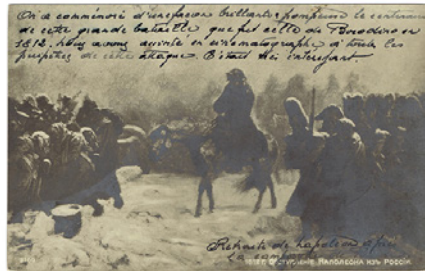 On a commémoré d'une façon brillante, pompeuse le centenaire
de cette grande bataille que fut celle de Borodino en
1812. Nous avons assisté en cinématographe à toutes les
péripéties de cette attaque. C'était très intéressant
Retraite de Napoléon après
la
1812 г. Отступленіе Наполеона изъ Россіи